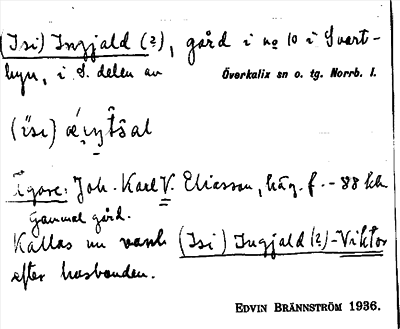 (Isi) Ingjald (2), gård i no 10 i Svart-
byn, i S. delen av
Överkalix sn o. tg. Norrb. l.
Ägare: Joh. Karl V. Eliasson, häg. f. - 88 här
Gammal gård.
Kallas nu vanl. (Isi) Ingjald (2)-Viktor
efter husbonden.
EDVIN BRÄNNSTRÖM 1936.